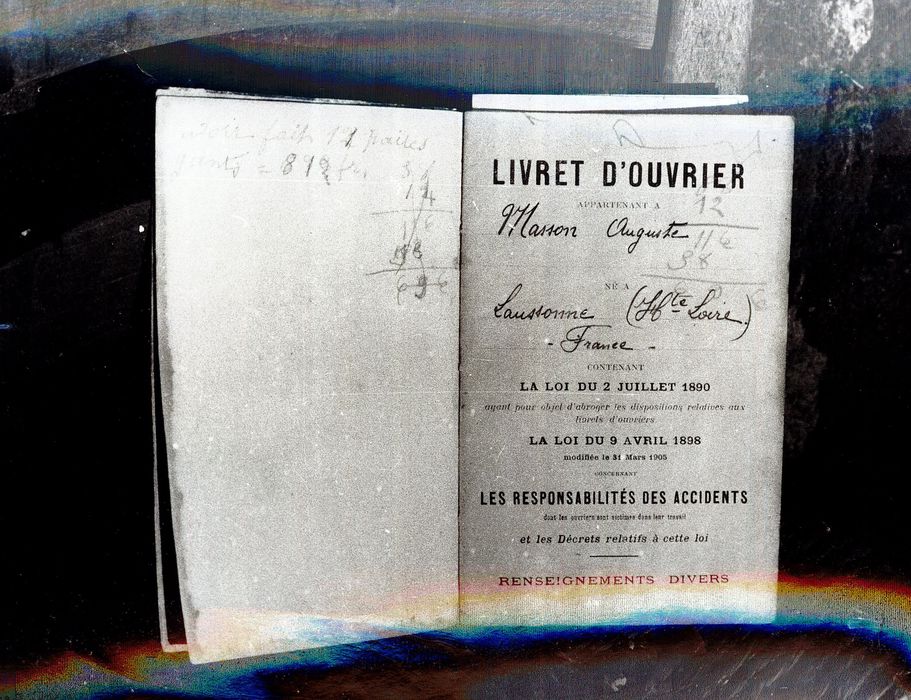 avoir fait 14 paires
gants = 812 fr.
LIVRET D'OUVRIER
APPARTENANT A
Masson Auguste
12
116
38
NÉ A
Laussonne (Hte Loire)
- France -
CONTENANT
LA LOI DU 2 JUILLET 1890
ayant pour objet d'abroger les dispositions relatives aux
livrets d'ouvriers
LA LOI DU 9 AVRIL 1898
modifiée le 31 Mars 1905
CONCERNANT
LES RESPONSABILITÉS DES ACCIDENTS
dont les ouvriers sont victimes dans leur travail
et les Décrets relatifs à cette loi
RENSEIGNEMENTS DIVERS